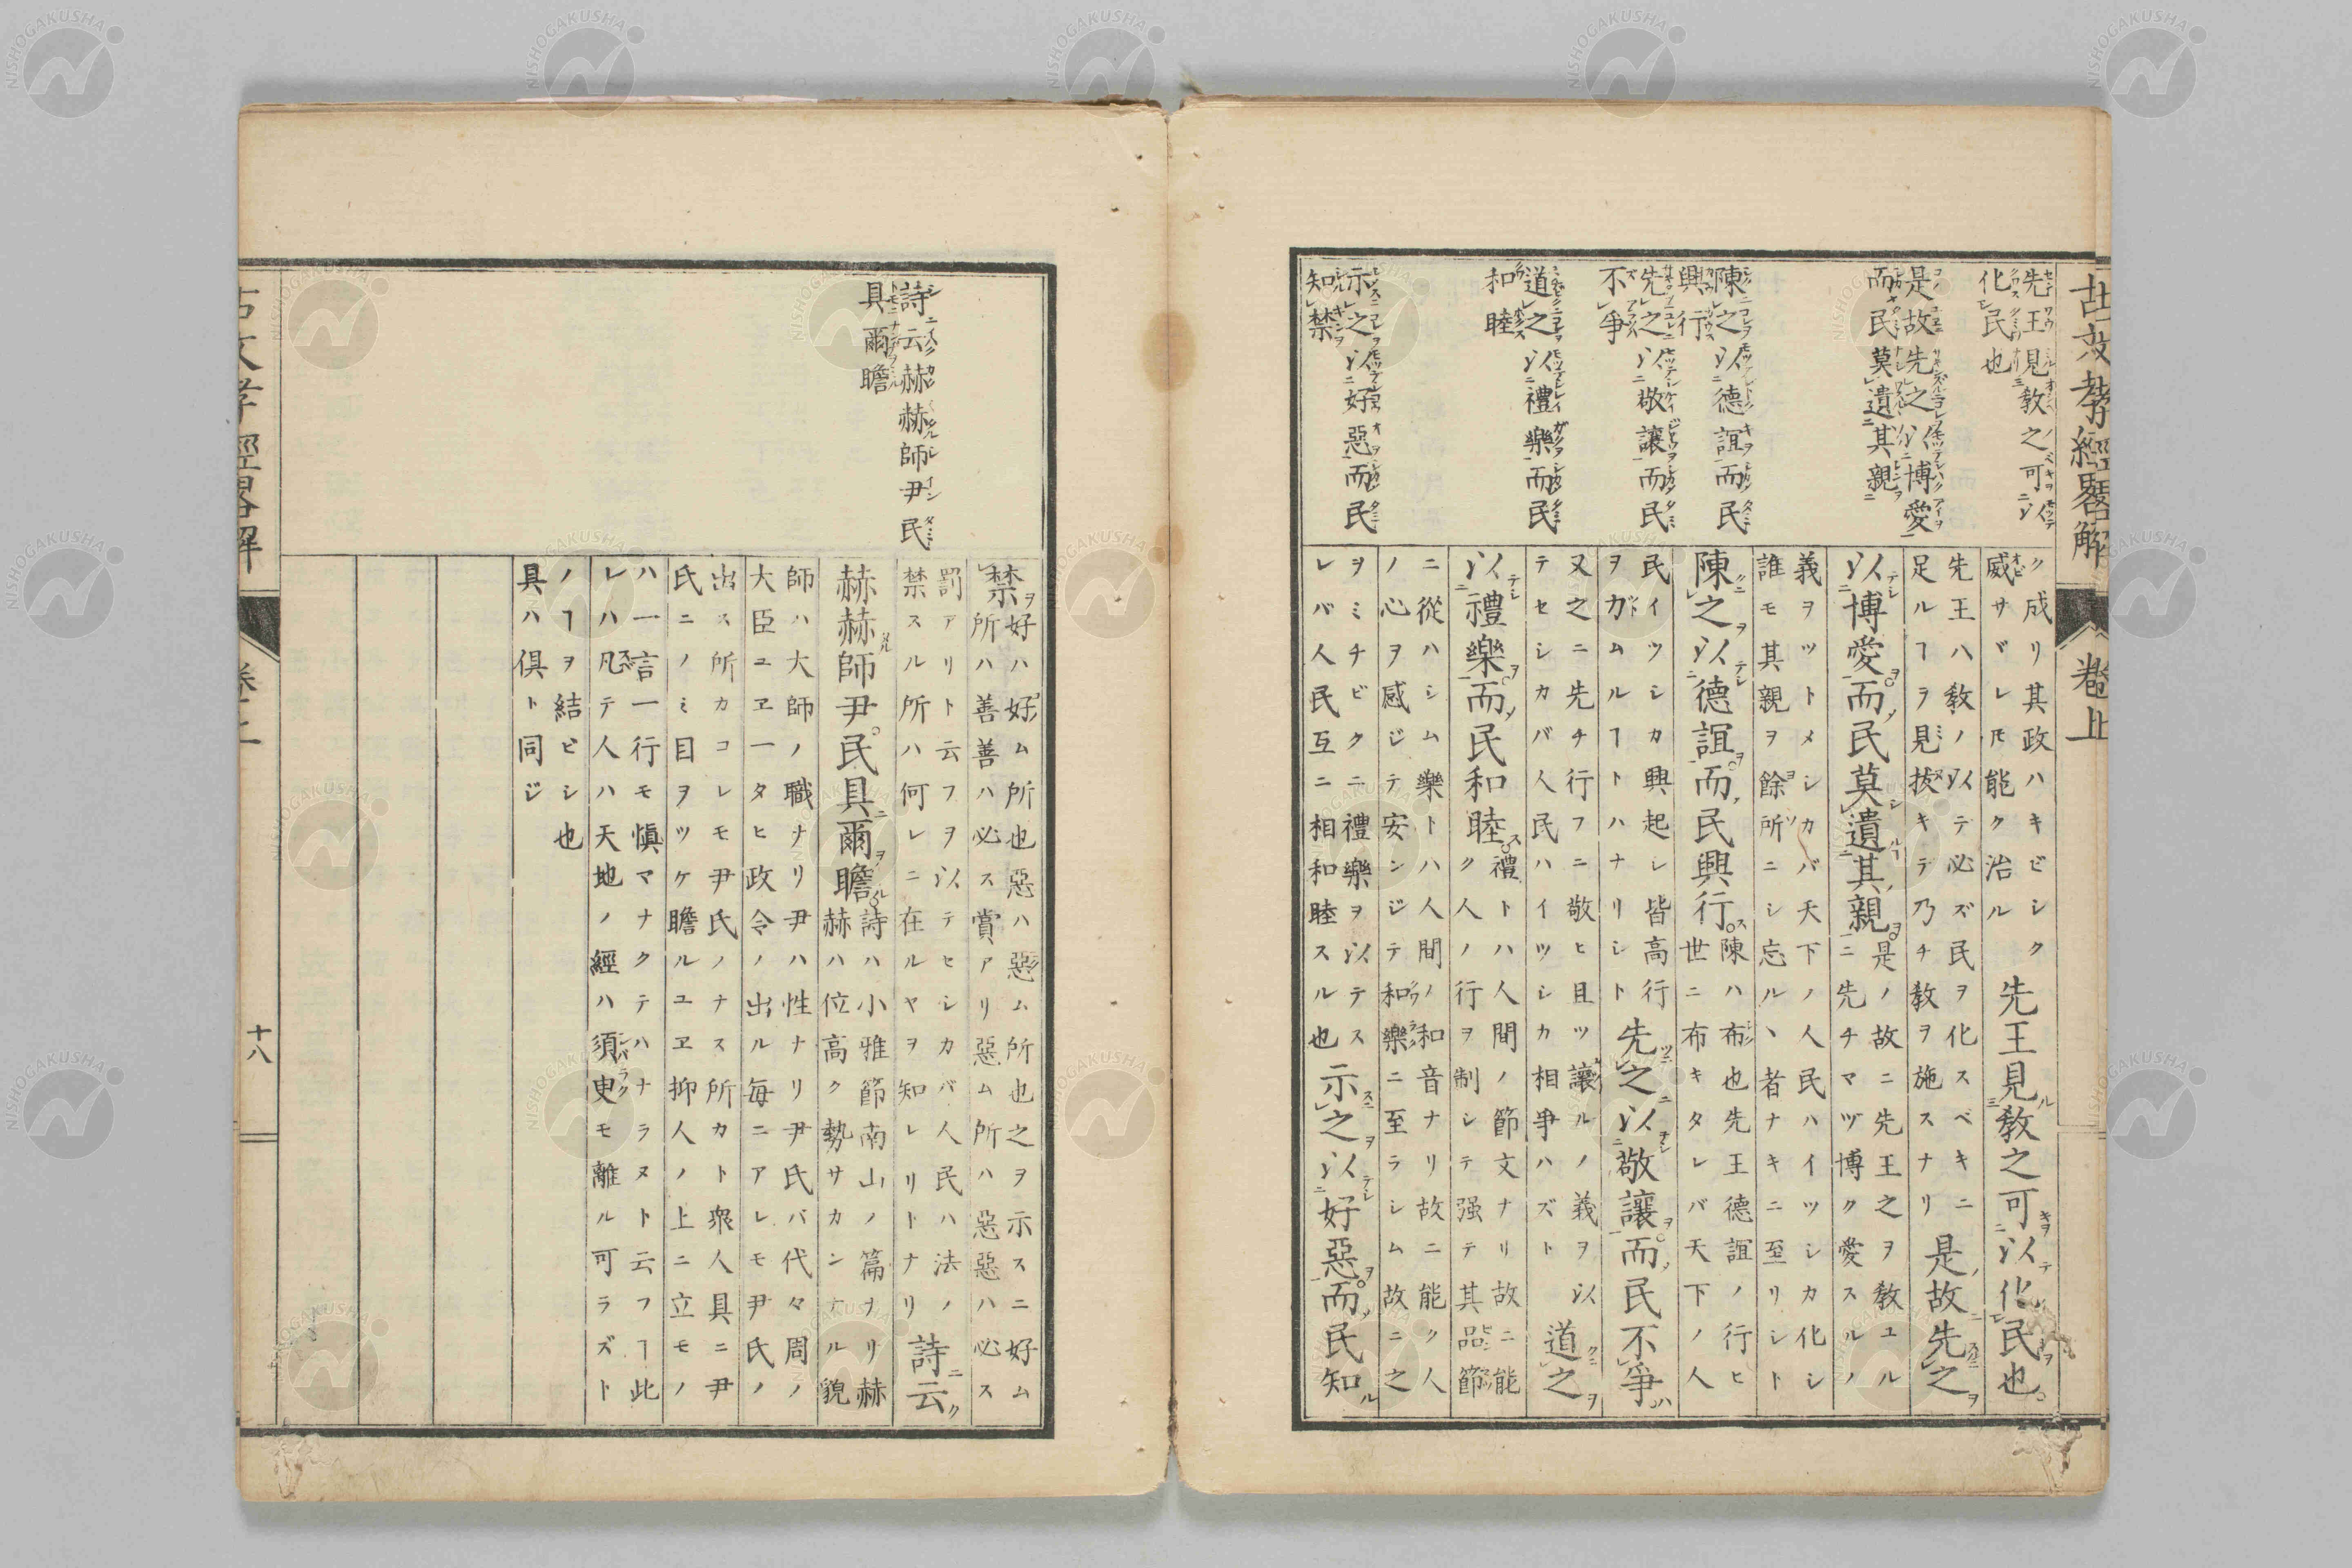 古文孝經畧解 卷上
先王見敎之可以
化民也
是故先之以博愛
而民莫遺其親
陳之以德誼而民
興行
先之以敬讓而民
不爭
道之以禮樂而民
和睦
示之以好惡而民
知禁
ク成リ其政ハキビシク
威サザレ𪜈能ク治ル
先王見敎之可以化民也
先王ハ敎ノ以テ必ズ民ヲ化スベキニ
足ルヿヲ見拔キテ乃チ敎ヲ施スナリ
是故先之
以博愛而民莫遺其親
是ノ故ニ先王之ヲ敎ユル
ニ先チマヅ博ク愛スルノ
義ヲツトメシカバ天下ノ人民ハイツシカ化シ
誰モ其親ヲ餘所ニシ忘ルヽ者ナキニ至リシト
陳之以德誼而民興行
陳ハ布也先王德誼ノ行ヒ
世ニ布キタレバ天下ノ人
民イツシカ興起シ皆高行
ヲ力ムルヿトハナリシト
先之以敬讓而民不爭
又之ニ先チ行フニ敬ヒ且ツ讓ルノ義ヲ以
テセシカバ人民ハイツシカ相爭ハズト
道之
以禮樂而民和睦
禮トハ人間ノ節文ナリ故ニ能
ク人ノ行ヲ制シテ强テ其品節
ニ從ハシム樂トハ人間ノ和音ナリ故ニ能ク人
ノ心ヲ感ジテ安ンジテ和樂ニ至ラシム故ニ之
ヲミチビクニ禮樂ヲ以テス
レバ人民互ニ相和睦スル也
示之以好惡而民知
詩云赫赫師尹民
具爾瞻
禁
好ハ好ム所也惡ハ惡ム所也之ヲ示スニ好ム
所ハ善善ハ必ス賞アリ惡ム所ハ惡惡ハ必ス
罰アリト云フヲ以テセシカバ人民ハ法ノ
禁スル所ハ何レニ在ルヤヲ知レリトナリ
詩云
赫赫師尹民具爾瞻
詩ハ小雅節南山ノ篇ナリ赫
赫ハ位高ク勢サカンナル貌
師ハ大師ノ職ナリ尹ハ性ナリ尹氏バ代々周ノ
大臣ユヱ一タヒ政令ノ出ル每ニアレモ尹氏ノ
出ス所カコレモ尹氏ノナス所カト衆人具ニ尹
氏ニノミ目ヲツケ瞻ルユヱ抑人ノ上ニ立モノ
ハ一言一行モ愼マナクテハナラヌト云フヿ此
レハ凡テ人ハ天地ノ經ハ須臾モ離ル可ラズト
ノヿヲ結ビシ也
具ハ俱ト同ジ
古文孝經畧解 卷上 十八
NISHOGAKUSHA